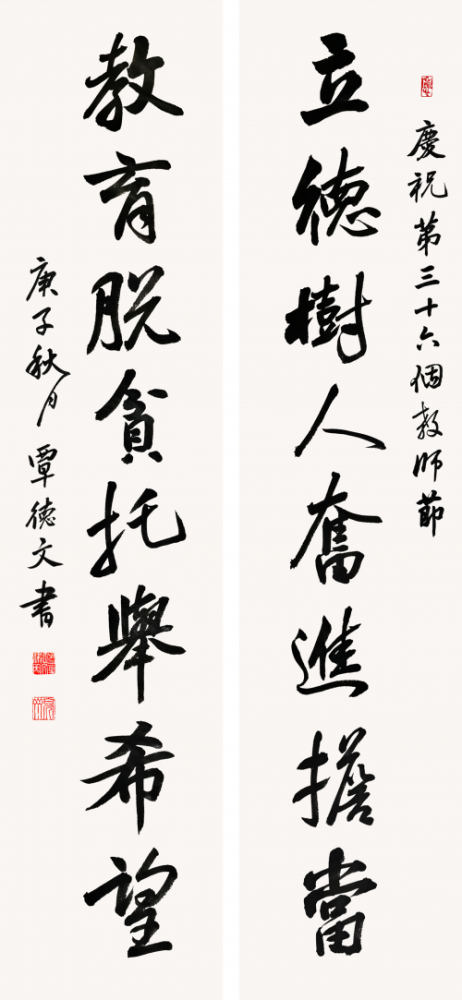 慶祝第三十六個教師節
立德樹人奮進擔當
教育脱貧托舉希望
庚子秋月覃德文書